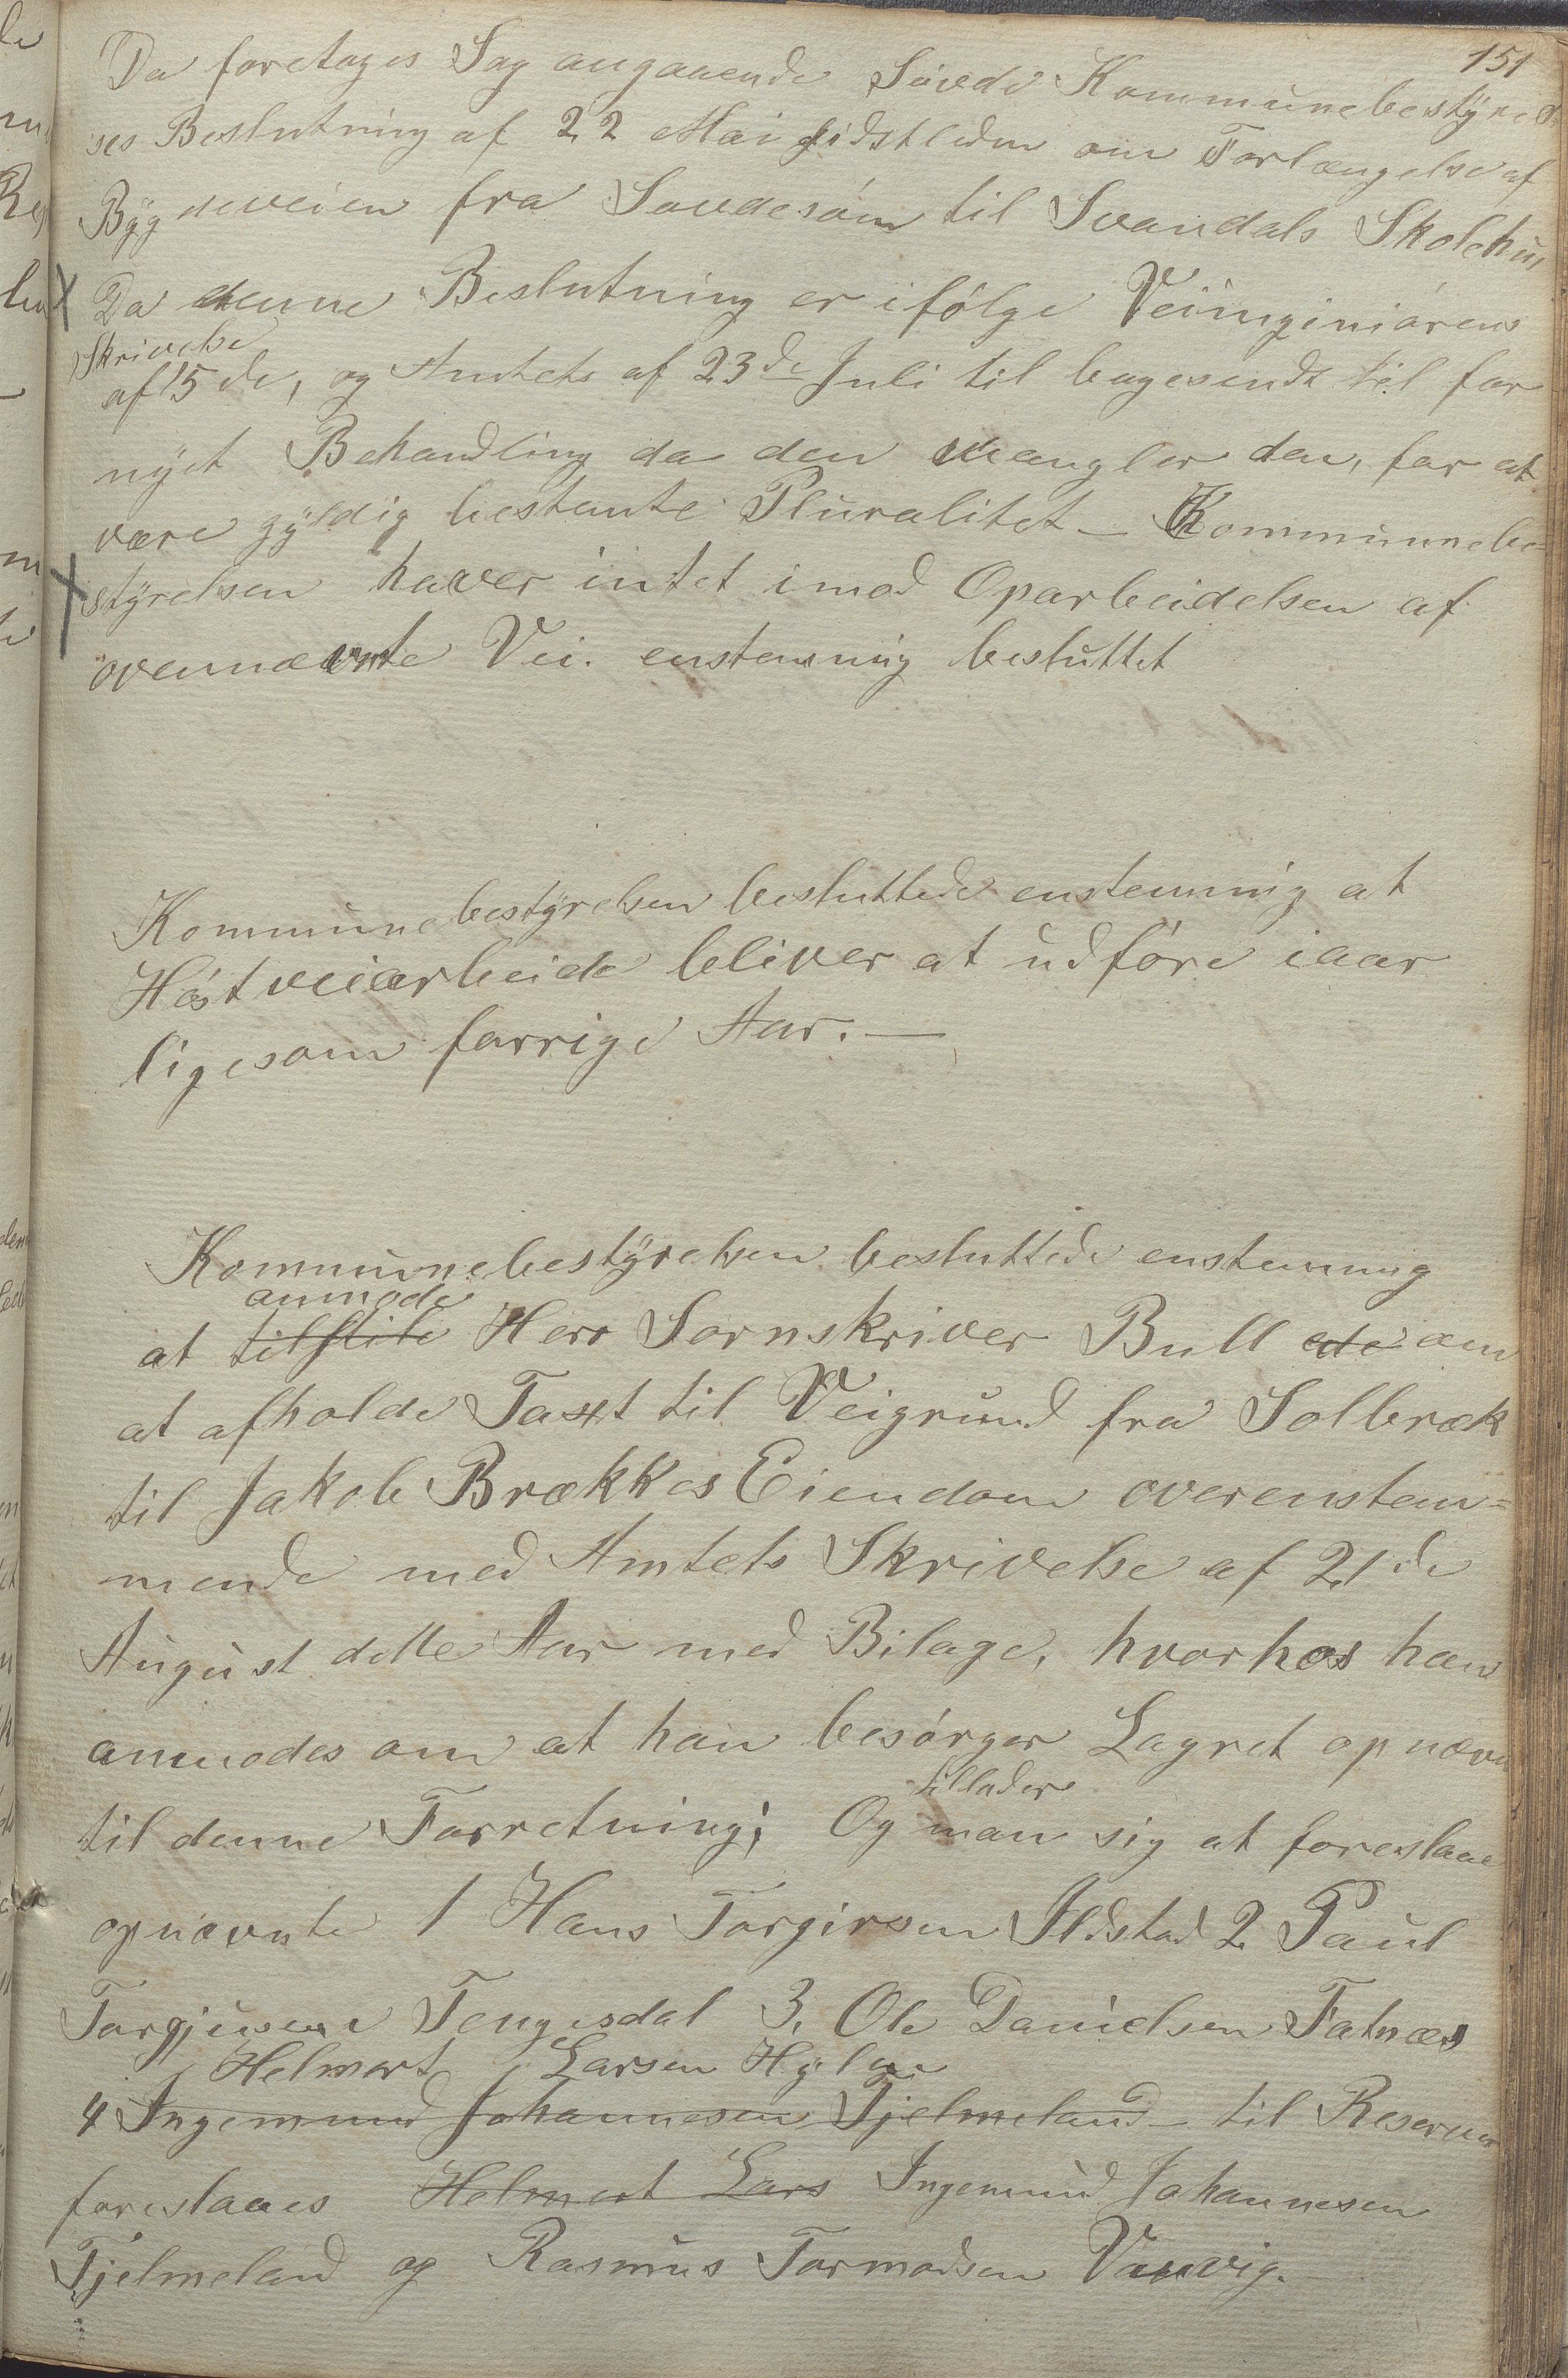 151
Da foretages Sag angaaende Søvde Kommunebestyrel
ses Beslutning af 22 Mai sidstleden om Forlængelse af
Bygdeveien fra Sovdesøen til Svandals Skolehus
Da denne Beslutning er ifølge Veiinginiørens
Skrivelse
af 15de, og Amtets af 23de Juli til bagesendt til for
nyet Behandling da den mangler den, for at
være gyldig bestemte Pluralitet - Kommunebe-
styrelsen haver intet imod Oparbeidelsen af
ovennævnte Vei. enstemmig besluttet
Kommunebestyrelsen besluttede enstemmig at
Høstveiarbeide bliver at udføre iaar
ligesom forrige Aar. —
Kommunebestyrelsen besluttede enstemmig
anmode
at tilstile Herr Sornskriver Bull om
at afholde Taxt til Veigrund fra Solbræk
til Jakob Brækkes Eiendom overenstem=
mende med Amtets Skrivelse af 21de
August dette Aar med Bilage, hvorhos han
anmodes om at han besørger Lagret opnævn
tillader
til denne Forretning; Og man sig at foreslaae
opnævnte 1 Hans Torgirsen Ilstad 2 Paul
Torgjusene Tengesdal 3. Ole Danielsen Fatnæs
Helmert Larsen Hylen
4 Ingemund Johannesen Tjelmeland - til Reserver
foreslaaes Helmert Lars Ingemund Johannesen
Tjelmeland og Rasmus Tormodsen Vanvig.